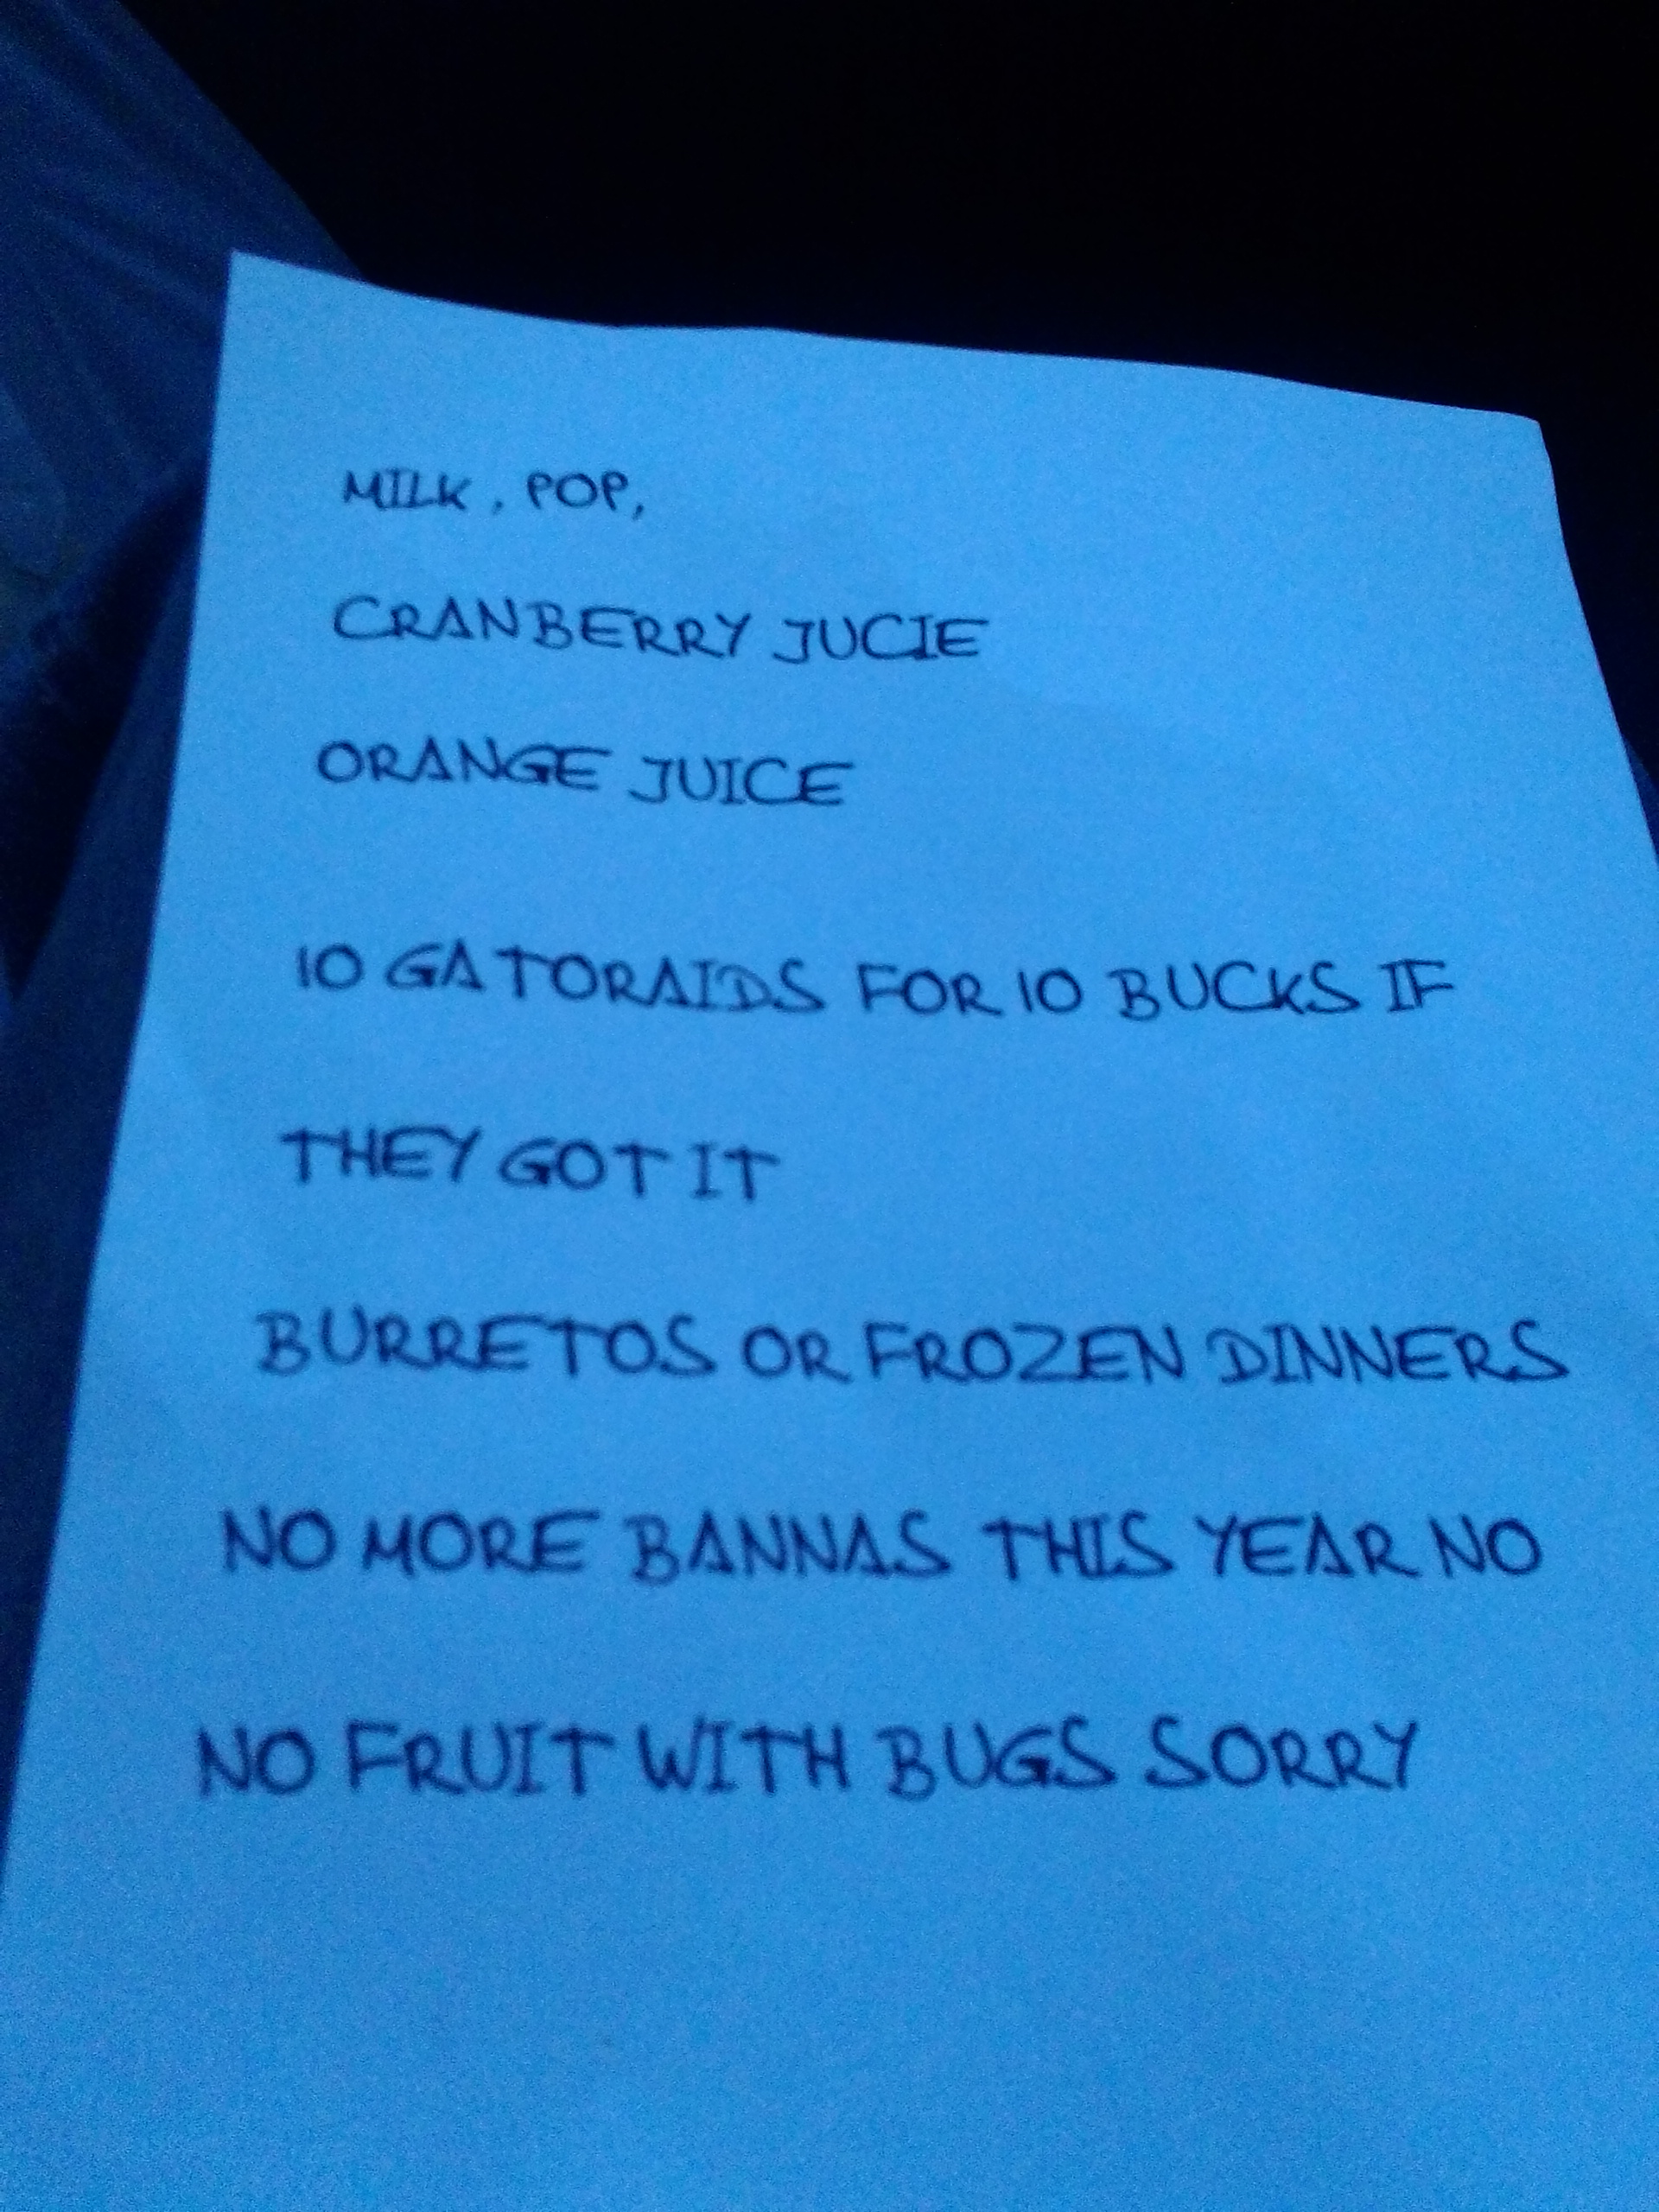 MILK, POP,
CRANBERRY JUCIE
ORANGE JUICE
10 GATORAIDS FOR 10 BUCKS IF
THEY GOT IT
BURRETOS OR FROZEN DINNERS
NO MORE BANNAS THIS YEAR NO
NO FRUIT WITH BUGS SORRY